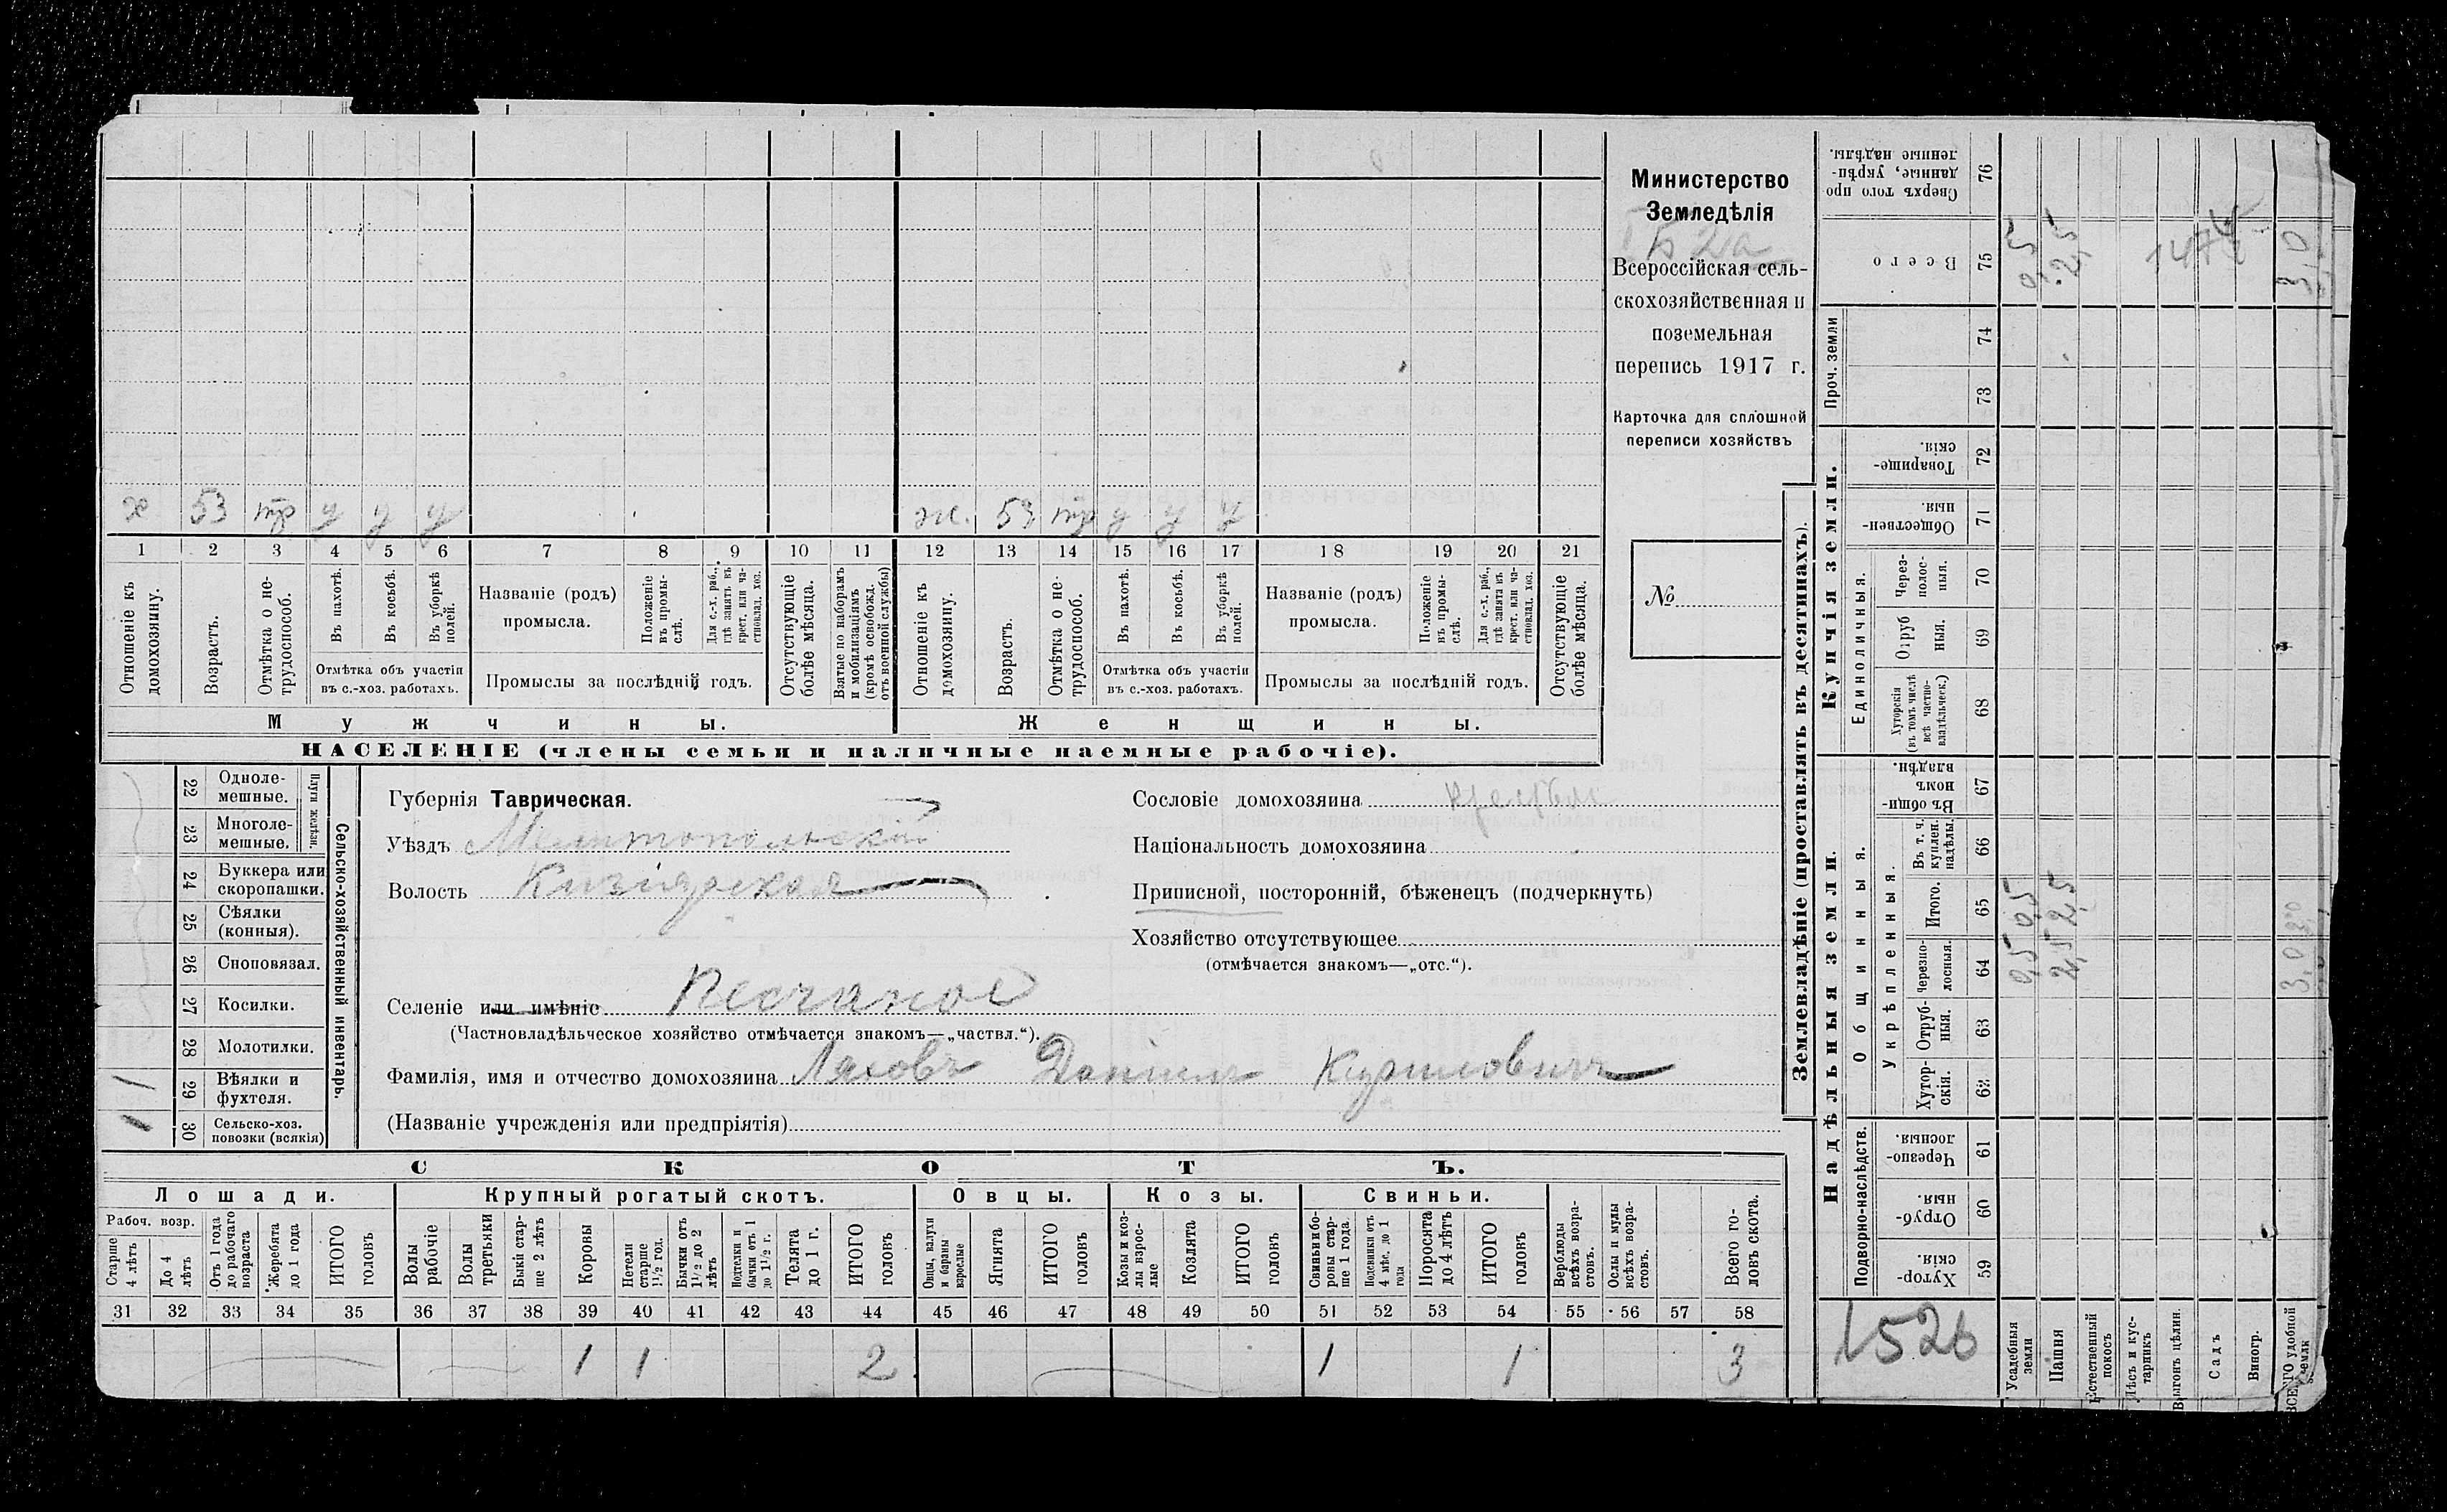 Министерство
Земледѣлія
Всероссійская сель-
скохозяйственная и
поземельная
перепись 1917 г.
Карточка для сплошной
переписи хозяйствъ
№
х 53 тр у у у ж. 53 тр у у у
1 2 3 4 5 6 7 8 9 10 11 12 13 14 15 16 17 18 19 20 21
Отношеніе къ домохозяину.
Возрастъ.
Отмѣтка о не-трудоспособ.
Въ пахотѣ.
Въ косьбѣ.
Въ уборкѣ полей.
Отмѣтка объ участіи
въ с.-хоз. работахъ.
Названіе (родъ)
промысла.
Положеніе въ промы-слѣ.
Для с.-х. раб., гдѣ занятъ въ крест. или ча-стновлад. хоз.
Промыслы за послѣдній годъ.
Отсутствующіе болѣе мѣсяца.
Взятые по наборамъ и мобилизаціямъ (кромѣ освобожд. отъ военной службы)
Отношеніе къ домохозяину.
Возрастъ.
Отмѣтка о не-трудоспособ.
Въ пахотѣ.
Въ косьбѣ.
Въ уборкѣ полей.
Отмѣтка объ участіи
въ с.-хоз. работахъ.
Названіе (родъ)
промысла.
Положеніе въ промы-слѣ.
Для с.-х. раб., гдѣ занята въ крест. или ча-стновлад. хоз.
Промыслы за послѣдній годъ.
Отсутствующіе болѣе мѣсяца.
Мужчины.
Женщины.
НАСЕЛЕНІЕ (члены семьи и наличные наемные рабочіе).
22 Одноле-
мешные.
23 Многоле-
мешные.
Плуги желѣзн.
24 Буккера или
скоропашки.
25 Сѣялки
(конныя).
26 Сноповязал.
27 Косилки.
28 Молотилки.
29 Вѣялки и
фухтеля.
1
30 Сельско-хоз.
повозки (всякія)
1
Сельско-хозяйственный инвентарь.
Губернія Таврическая.
Уѣздъ Мелитопольскій
Волость Кизіярская
Селеніе или имѣніе Песчаное
(Частновладѣльческое хозяйство отмѣчается знакомъ—„частвл.“).
Фамилія, имя и отчество домохозяина Ляховъ Даніилъ Кирилловичъ
(Названіе учрежденія или предпріятія)
Сословіе домохозяина
Національность домохозяина
Приписной, посторонній, бѣженецъ (подчеркнуть)
Хозяйство отсутствующее
(отмѣчается знакомъ—„отс.“).
СКОТЪ.
Лошади.
Крупный рогатый скотъ.
Овцы.
Козы.
Свиньи.
Рабоч. возр.
Старше 4 лѣтъ
До 4 лѣтъ
Отъ 1 года до рабочаго возраста
Жеребята до 1 года
ИТОГО головъ
Волы рабочіе
Волы третьяки
Быки стар-ше 2 лѣтъ
Коровы
Нетели старше 1½ год.
Бычки отъ 1½ до 2 лѣтъ
Подтелки и бычки отъ 1 до 1½ г.
Телята до 1 г.
ИТОГО головъ
Овцы, валухи и бараны взрослые
Ягнята
ИТОГО головъ
Козы и коз-лы взрос-лые
Козлята
ИТОГО головъ
Свиньи и бо-ровы стар-ше 1 года
Подсвинки отъ 4 мѣс. до 1 года
Поросята до 4 лѣтъ
ИТОГО головъ
Верблюды всѣхъ возра-стовъ.
Ослы и мулы всѣхъ возра-стовъ.
Всего го-ловъ скота.
31 32 33 34 35 36 37 38 39 40 41 42 43 44 45 46 47 48 49 50 51 52 53 54 55 56 57 58
1 1 2 1 1 3
Землевладѣніе (проставлять въ десятинахъ).
Надѣльныя земли.
Купчія земли.
Проч. земли
Сверхъ того про
данные, укрѣп-
ленные надѣлы.
76
Всего
75
74
73
Товарище-
скія.
72
Обществен-
ныя.
71
Единоличныя.
Через-
полос-
ныя.
70
Отруб
ныя.
69
Хуторскія
(въ томъ числѣ
всѣ частно-
владѣльческ.)
68
Въ общи-
номъ
владѣн.
67
Общинныя.
Укрѣпленныя.
Въ т. ч.
куплен.
надѣлы.
66
Итого.
65
Черезпо-
лосныя.
64
Отруб-
ныя.
63
Хутор-
скія.
62
Подворно-наслѣдств.
Черезпо-
лосныя.
61
Отруб-
ныя.
60
Хутор-
скія.
59
0,5 0,5 0,5
2,5 2,5 2,5
3,0 3,0 3,0
Усадебныя земли
Пашня
Естественный покосъ
Лѣсъ и кус-тарникъ
Выгонъ цѣлин.
Садъ
Виногр.
ВСЕГО удобной земли